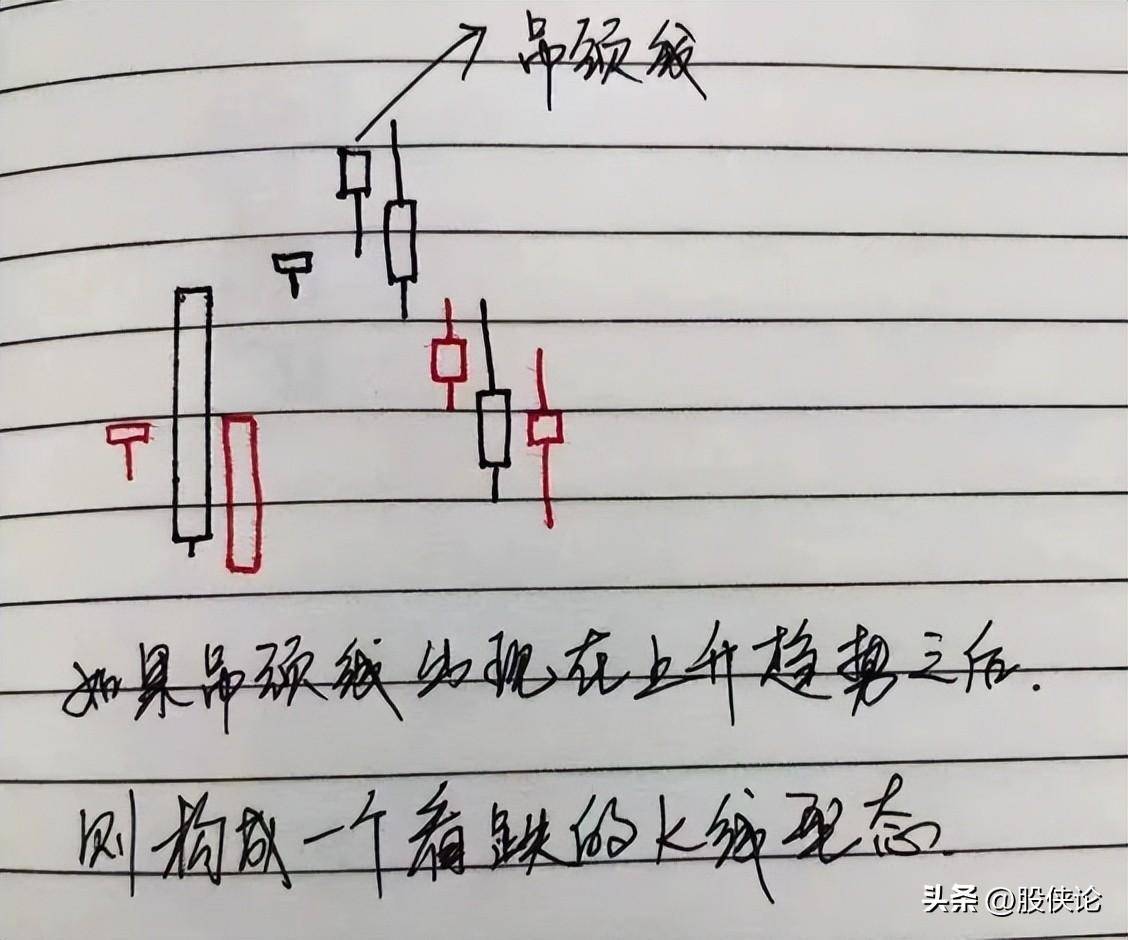 吊颈线
如果吊颈线出现在上升趋势之后.
则构成一个看跌的K线形态.
头条 @股侠论